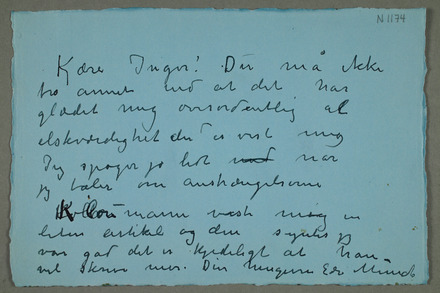 N. 1174
Kjære Inger! Du må ikke
tro annet end at det har
glædet mig overordentlig al
elskværdighet du es vist mig
Jeg spøger jo lidt med når
jeg taler om anstrængelserne
mann mig en
liten artikel og den synes jeg
var god det er kjedeligt at han
vil skrive mer. Din hengivne Edv Munch